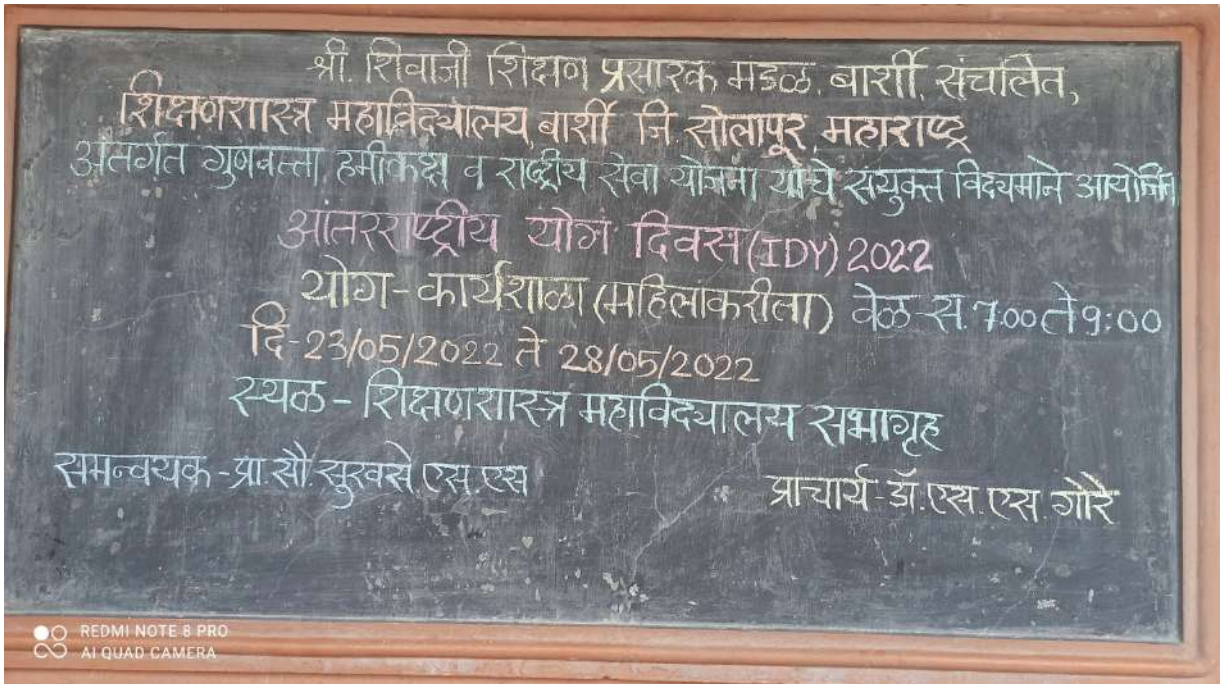 श्री. शिवाजी शिक्षण प्रसारक मंडळ. बार्शी, संचलित,
शिक्षणशास्त्र महाविद्यालय, बार्शी जि. सोलापूर, महाराष्ट्र
अंतर्गत गुणवत्ता, हमीकक्ष व राष्ट्रीय सेवा योजना यांचे संयुक्त विद्यमाने आयोजित
आंतरराष्ट्रीय योग दिवस (IDY) 2022
योग-कार्यशाळा (महिलांकरीता) वेळ-स. 7.00 ते 9:00
दि-23/05/2022 ते 28/05/2022
स्थळ - शिक्षणशास्त्र महाविद्यालय सभागृह
समन्वयक - प्रा. सौ. सुरवसे एस. एस
प्राचार्य-डॉ. एस. एस. गोरे
REDMI NOTE 8 PRO
AI QUAD CAMERA